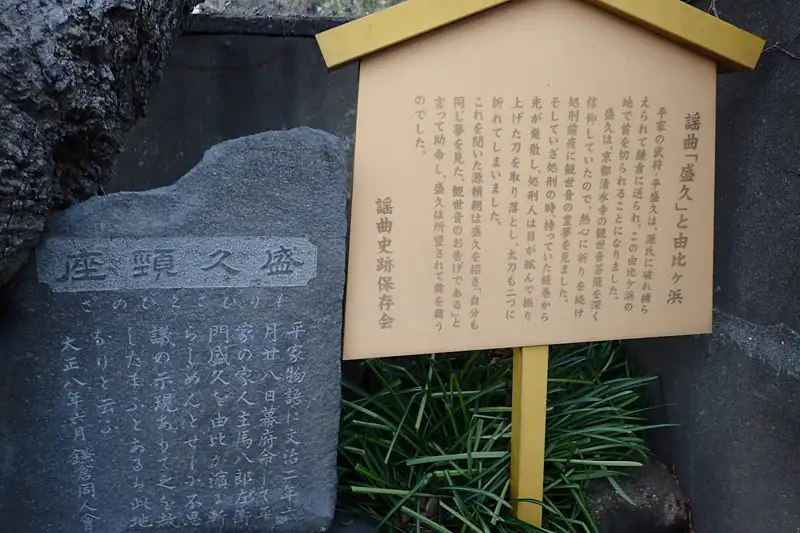 謡曲「盛久」と由比ヶ浜
平家の武将・平盛久は、源氏に破れ捕ら
えられて鎌倉に送られ、この由比ヶ浜の
地で首を切られることになりました。
盛久は、京都清水寺の観世音菩薩を深く
信仰していたので、熱心に祈りを続け
処刑前夜に観世音の霊夢を見ました。
そしていざ処刑の時、持っていた経巻から
光が発散し、処刑人は目が眩んで振り
上げた刀を取り落とし、太刀も二つに
折れてしまいました。
これを聞いた源頼朝は盛久を招き「自分も
同じ夢を見た、観世音のお告げである」と
言って助命し、盛久は所望されて舞を舞う
のでした。
謡曲史跡保存会
盛久頸座
平家物語に文治二年六
月廿八日幕府命して平
家の家人主馬八郎左衛
門盛久を由比が濱に斬
らしめんとせしに不思
議の示現ありて之を赦
したまふとあるは此地
なりと云ふ
大正八年六月 鎌倉同人會